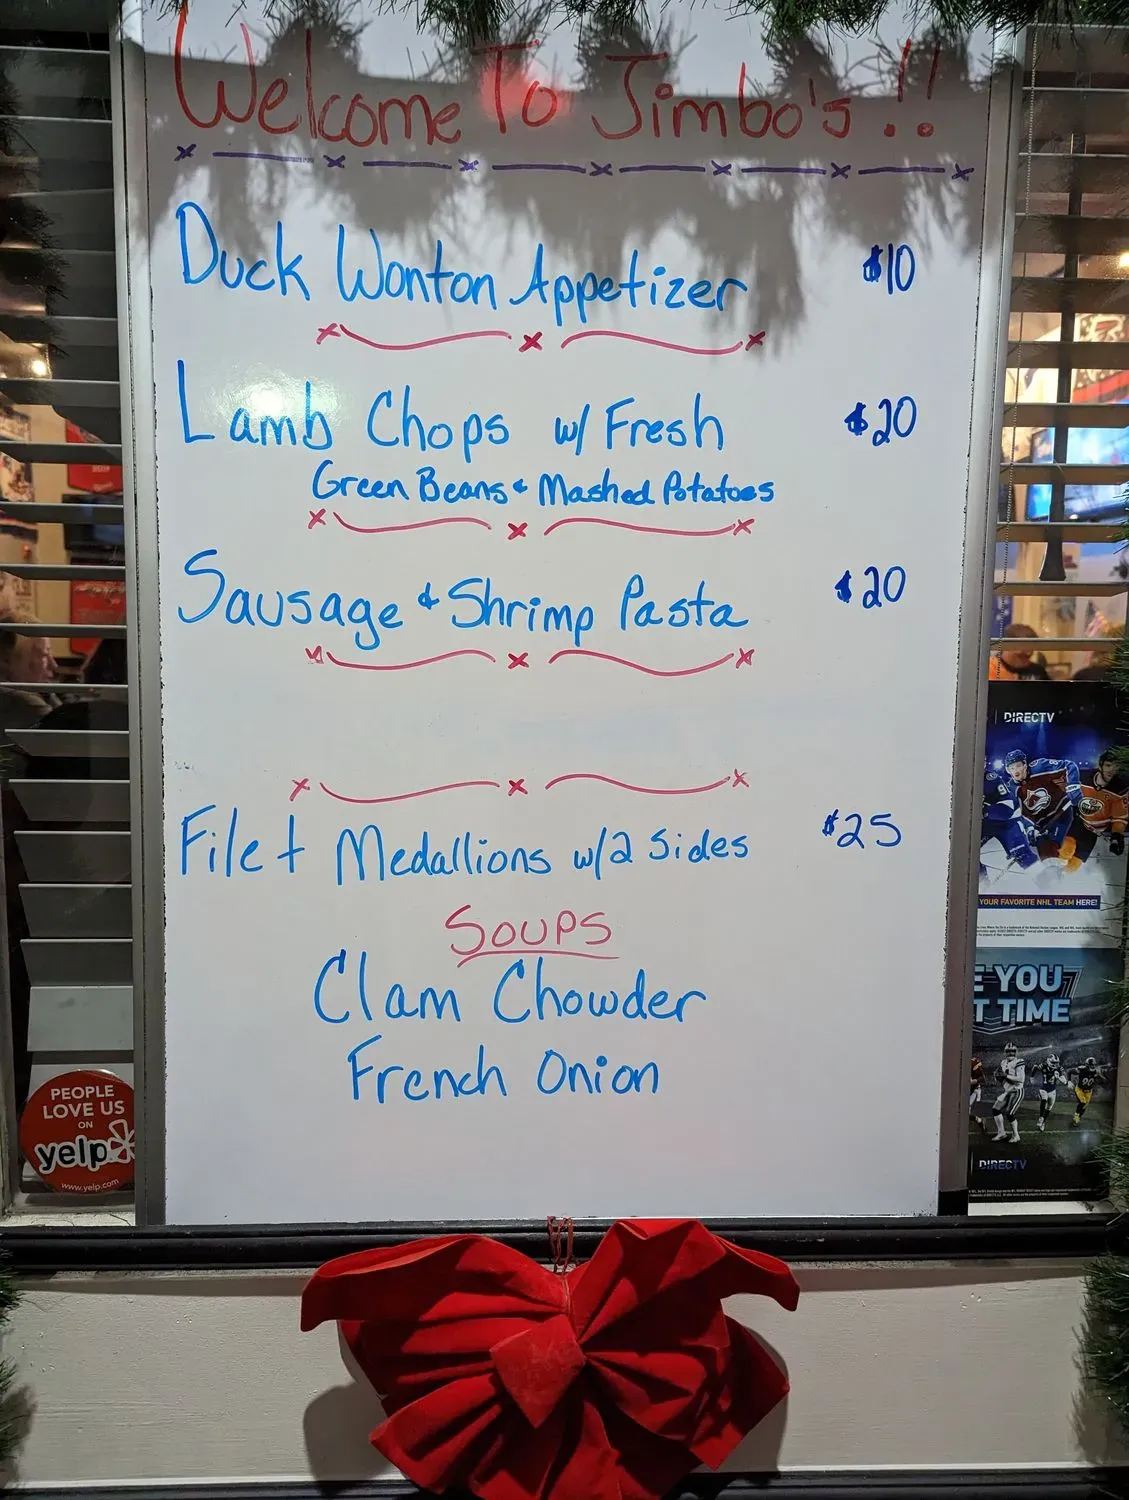 Welcome To Jimbo's!!
Duck Wonton Appetizer $10
Lamb Chops w/ Fresh $20
Green Beans & Mashed Potatoes
Sausage & Shrimp Pasta $20
Filet Medallions w/2 Sides $25
Soups
Clam Chowder
French Onion
PEOPLE
LOVE US
ON
yelp
www.yelp.com
DIRECTV
YOUR FAVORITE NHL TEAM HERE!
E YOU
T TIME
DIRECTV